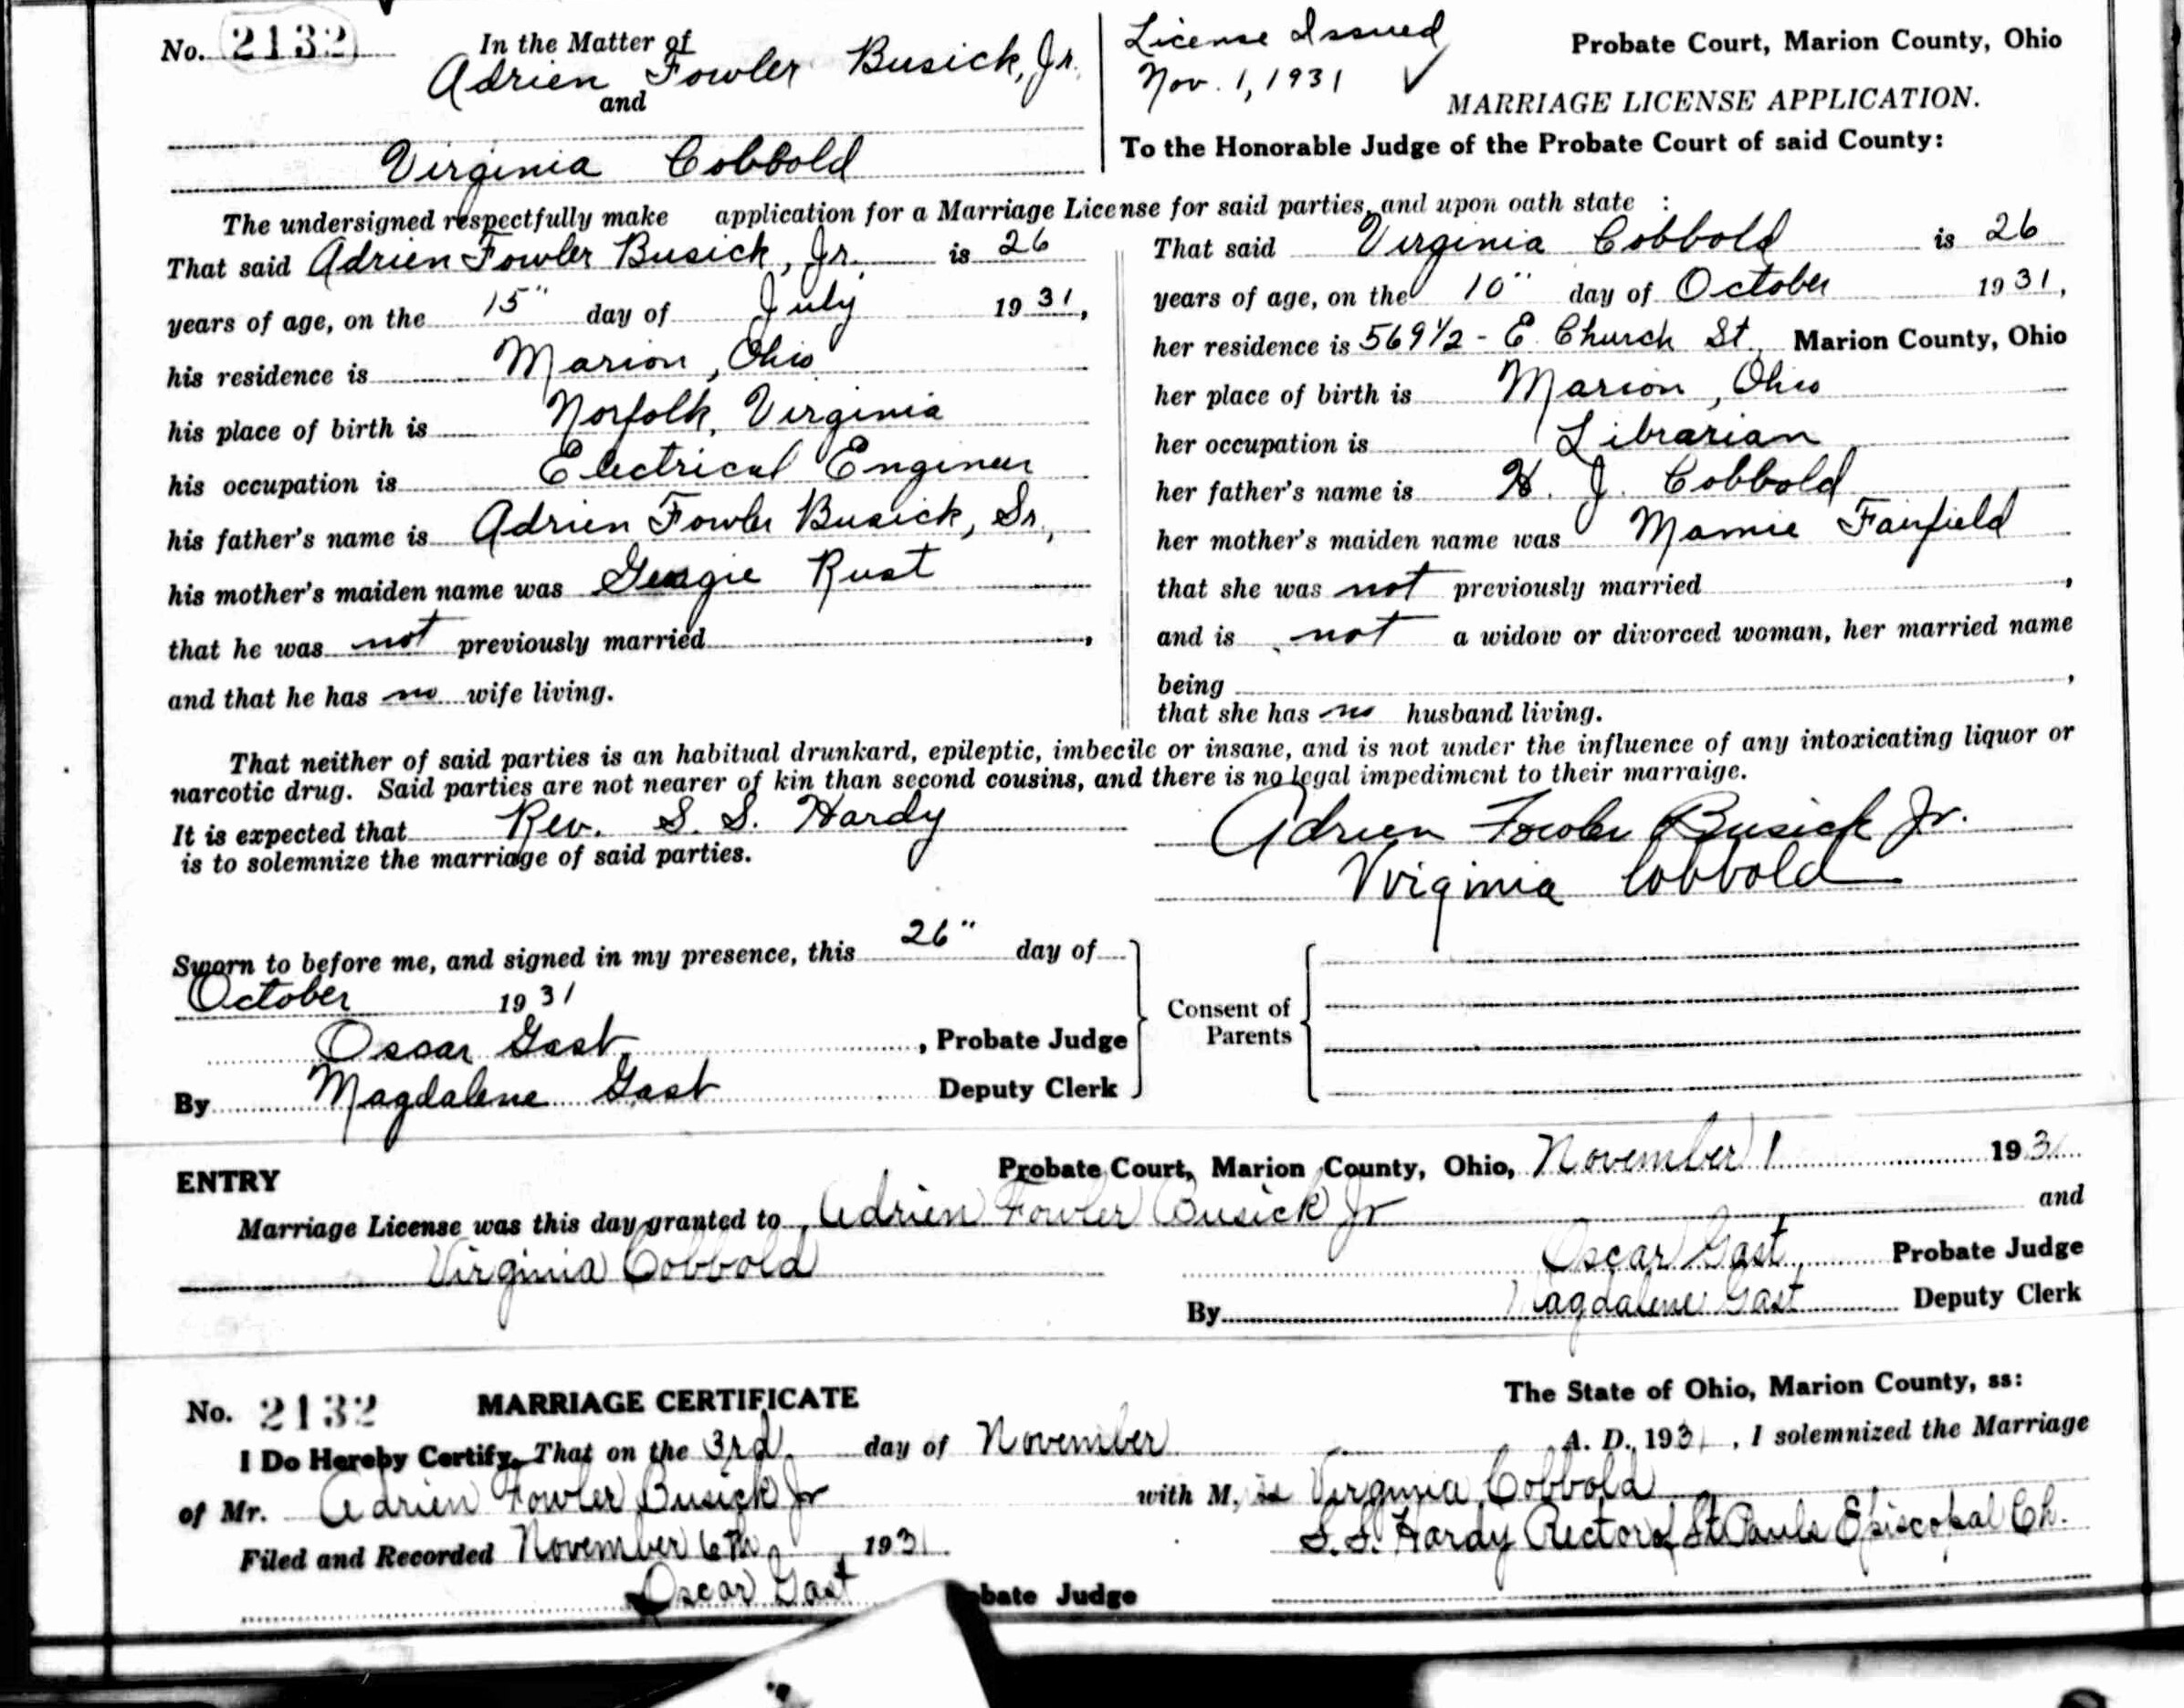 No. 2132
In the Matter of
Adrien Fowler Busick, Jr.
and
Virginia Cobbold
License Issued
Nov. 1, 1931 ✓
Probate Court, Marion County, Ohio
MARRIAGE LICENSE APPLICATION.
To the Honorable Judge of the Probate Court of said County:
The undersigned respectfully make application for a Marriage License for said parties, and upon oath state :
That said Adrien Fowler Busick, Jr. is 26
years of age, on the 15" day of July 1931,
his residence is Marion, Ohio
his place of birth is Norfolk, Virginia
his occupation is Electrical Engineer
his father's name is Adrien Fowler Busick, Sr.,
his mother's maiden name was Georgie Rust
that he was not previously married ,
and that he has no wife living.
That said Virginia Cobbold is 26
years of age, on the 10" day of October 1931,
her residence is 569 1/2 - E. Church St., Marion County, Ohio
her place of birth is Marion, Ohio
her occupation is Librarian
her father's name is H. J. Cobbold
her mother's maiden name was Mamie Fairfield
that she was not previously married ,
and is not a widow or divorced woman, her married name
being ,
that she has no husband living.
That neither of said parties is an habitual drunkard, epileptic, imbecile or insane, and is not under the influence of any intoxicating liquor or
narcotic drug. Said parties are not nearer of kin than second cousins, and there is no legal impediment to their marraige.
It is expected that Rev. S. S. Hardy
is to solemnize the marriage of said parties.
Adrien Fowler Busick Jr.
Virginia Cobbold
Sworn to before me, and signed in my presence, this 26" day of
October 1931
Oscar Gast, Probate Judge
By Magdalene Gast Deputy Clerk
Consent of
Parents
ENTRY
Probate Court, Marion County, Ohio, November 1 1931
Marriage License was this day granted to Adrien Fowler Busick Jr and
Virginia Cobbold
Oscar Gast, Probate Judge
By Magdalene Gast Deputy Clerk
No. 2132 MARRIAGE CERTIFICATE
The State of Ohio, Marion County, ss:
I Do Hereby Certify, That on the 3rd day of November A. D., 1931, I solemnized the Marriage
of Mr. Adrien Fowler Busick Jr with M.iss Virginia Cobbold
Filed and Recorded November 6th, 1931.
S. S. Hardy Rector of St Pauls Episcopal Ch.
Oscar Gast bate Judge